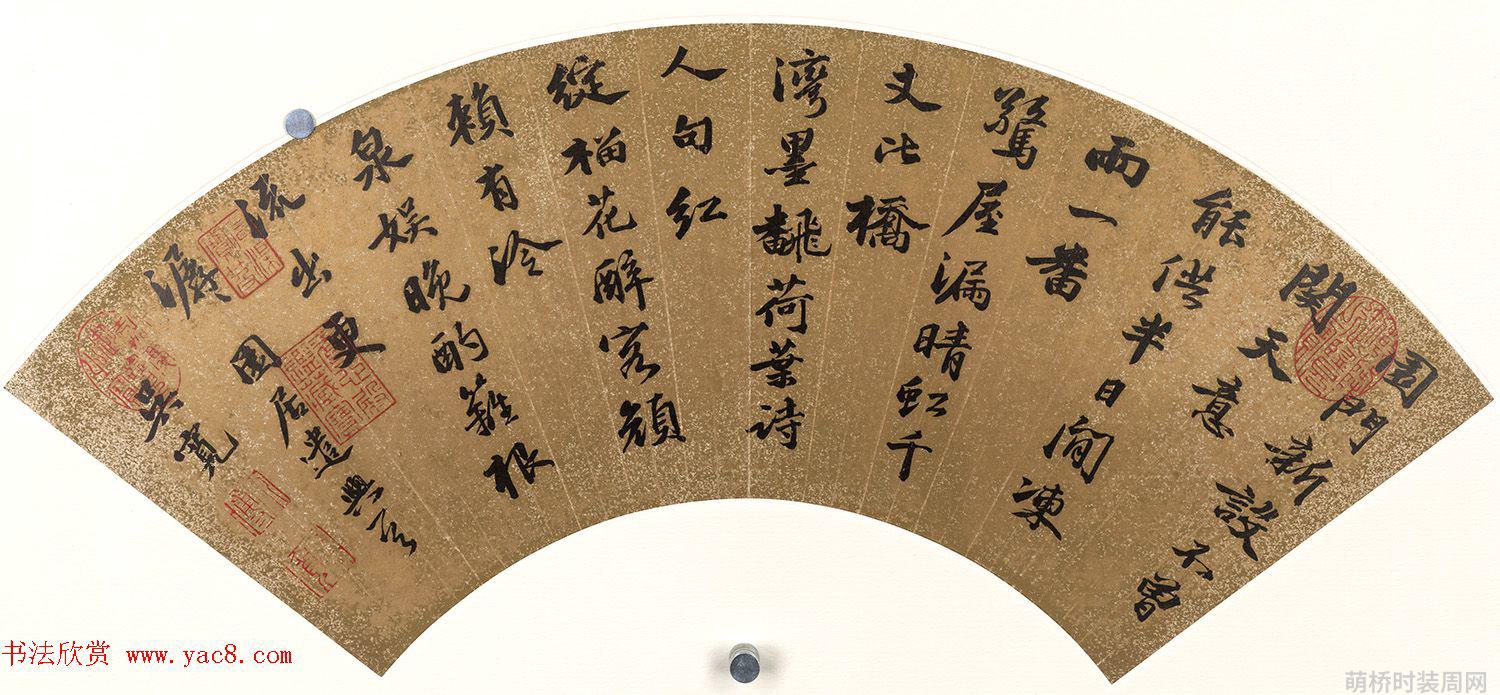 園門新設不曾
關天意
能供半日閒涷
雨一番
驚屋漏晴虹千
丈比橋
灣墨飜荷葉詩
人句紅
綻榴花醉客顏
賴有泠
泉娛晚酌籬根
流出更
潺 園居遣興
吳寬
书法欣赏 www.yac8.com
萌桥时装周网